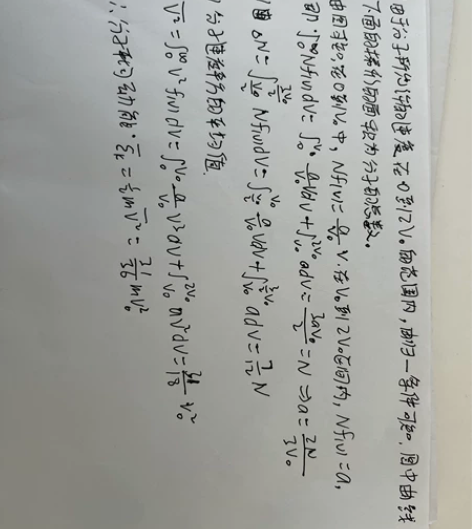 由于分子所允许的速率在0到2v₀的范围内,由归一化条件可知,图中曲线
下面的
由图可知,在0到v₀中, Nf(v)= a/v₀ v. 在v₀到2v₀区间内, Nf(v)=a,
即: ∫₀^∞ Nf(v)dv = ∫₀^v₀ a/v₀ vdv + ∫_v₀^2v₀ adv = 3av₀/2 = N ⇒ a = 2N/3v₀
ΔN = ∫_{v₀/2}^{3v₀/2} Nf(v)dv = ∫_{v₀/2}^{v₀} a/v₀ vdv + ∫_{v₀}^{3v₀/2} adv = 7/12 N
分子速率平方的平均值
v̅² = ∫₀^∞ v²f(v)dv = ∫₀^v₀ a/v₀ v³dv + ∫_v₀^2v₀ a v²dv = 31/18 v₀²
∴ 分子 平动动能. ε̅ₖ = ½mv̅² = 31/36 mv₀²